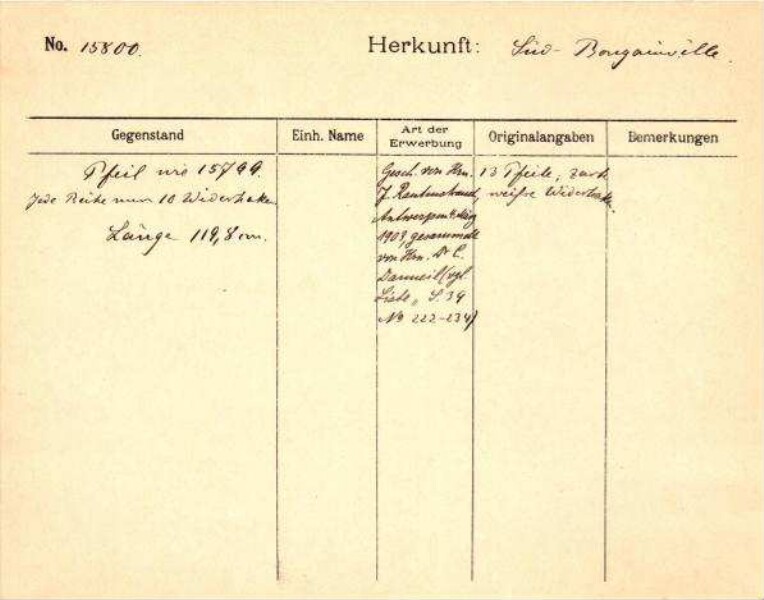 No. 15800. Herkunft: Süd-Bougainville.
Gegenstand Einh. Name Art der Erwerbung Originalangaben Bemerkungen
Pfeil wie 15799.
Jede Reihe nur 10 Widerhaken
Länge 119,8 cm.
Gesch. von Hrn.
J. Rautenstrauch,
Antwerpen
1909, gesammelt
von Hrn. Dr C.
Danneil (vgl.
Liste, S. 39
No 222-234)
13 Pfeile,
weiße Widerhaken